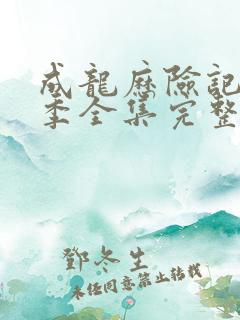 成龍歷險記
季全集完整
鄧冬生
未經同意禁止轉載